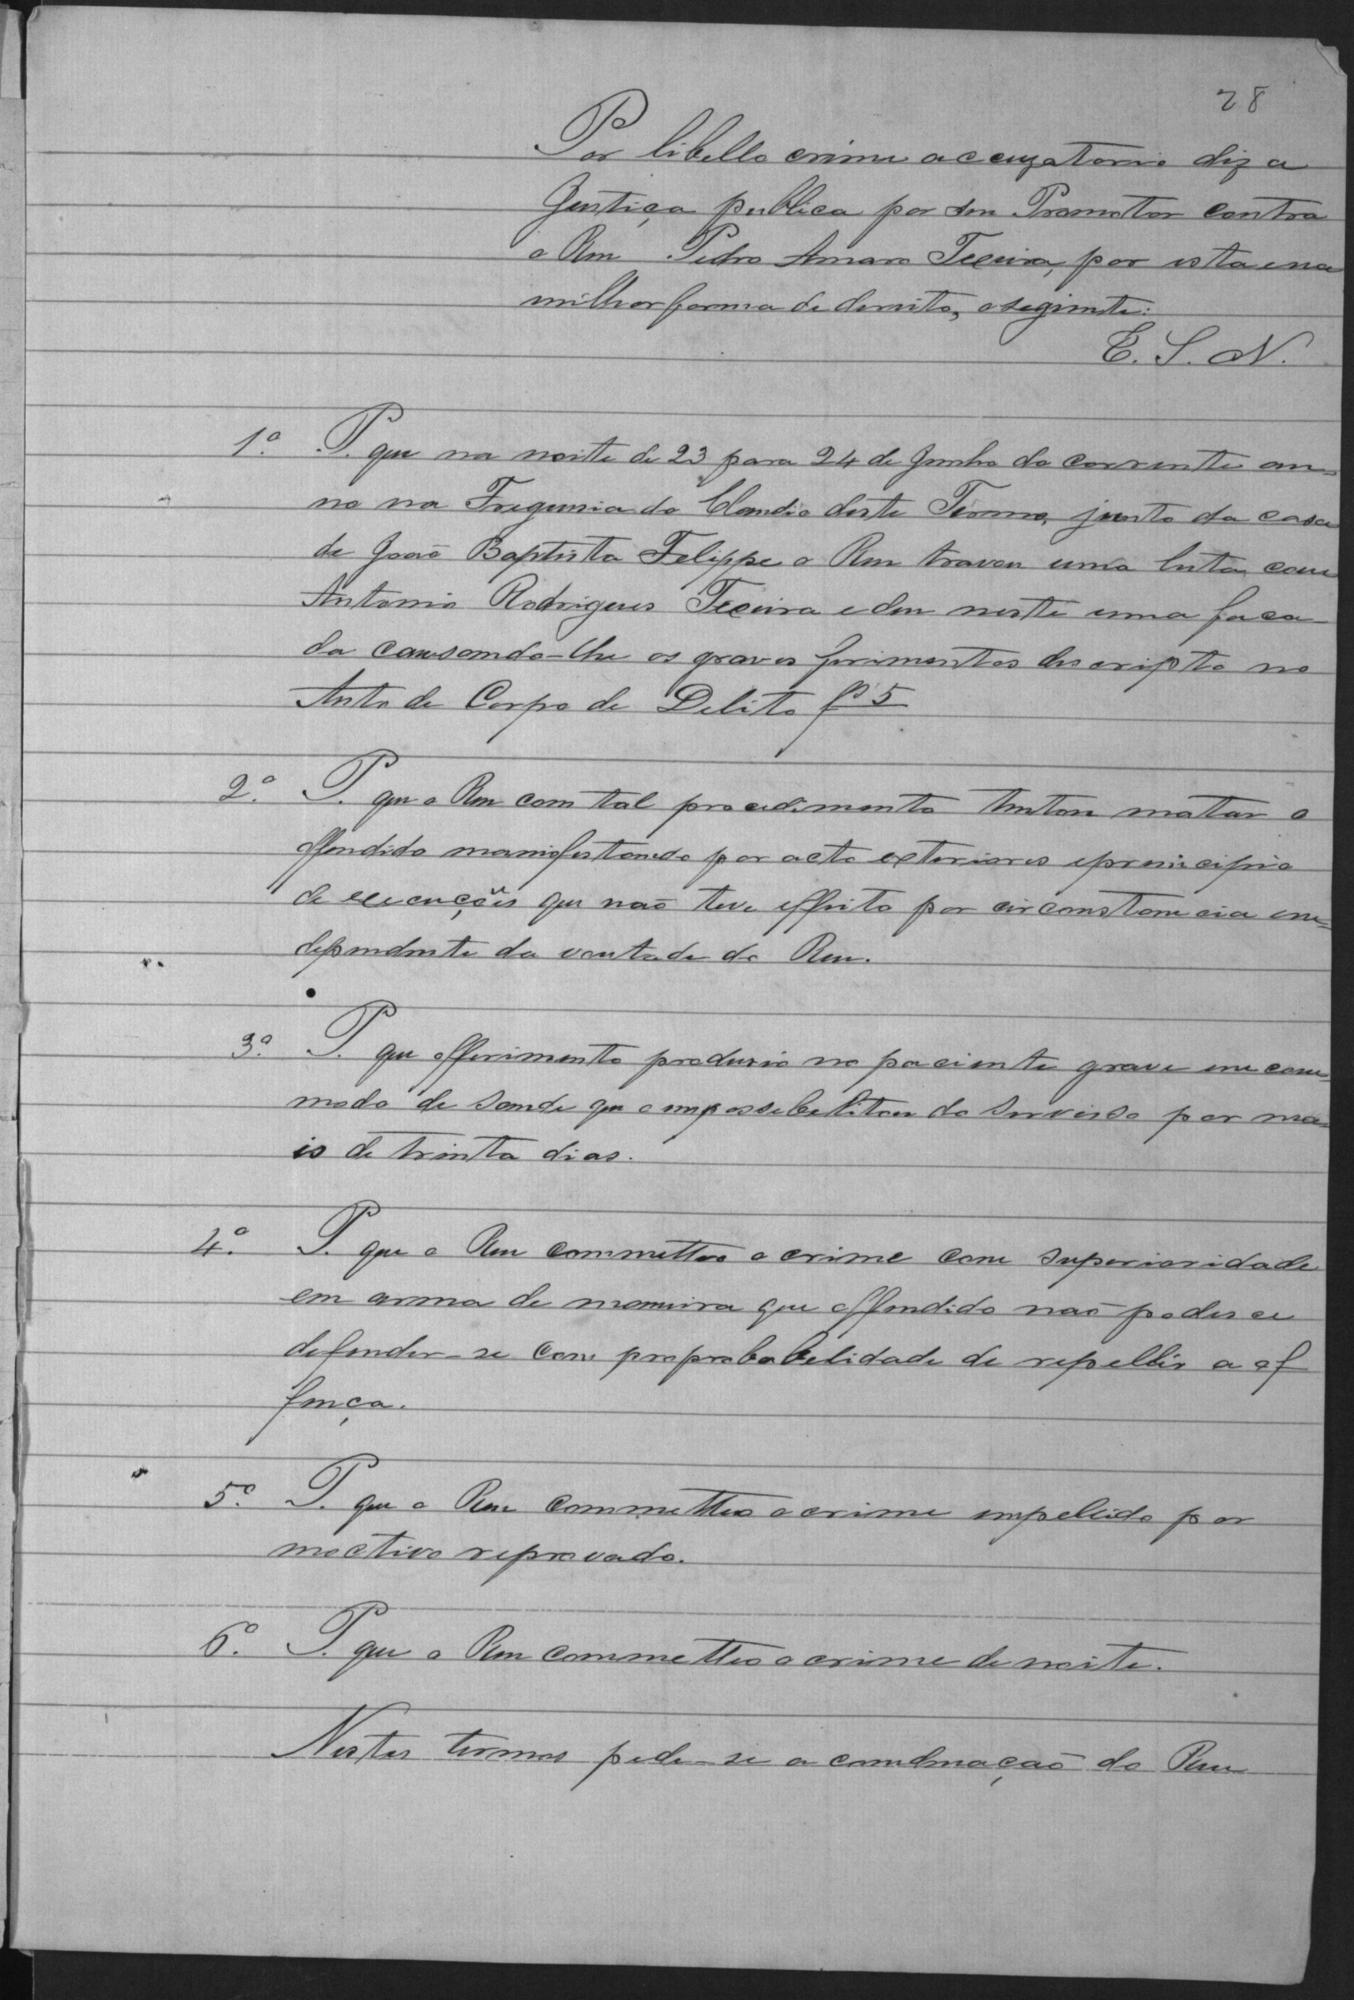 28
Por libello crime accuzatorio diz a
Justiça publica por seu Promotor contra
o Reu Pedro Amaro Texeira, por esta e na
milhor forma de dereito, o seginte:
E. S. N.
1º. P. que na noite de 23 para 24 de Junho do corrente an=
no na Freguesia do Claudio deste Termo, junto da casa
de João Baptista Felippe o Reu travou uma luta com
Antonio Rodrigues Texeira e deu neste uma faca-
da causando-lhe os graves ferimentos descripto no
Auto de Corpo de Delito fs 5
2º. P. que o Reu com tal procedimento tentou matar o
offendido manifestando por acto exteriores e principio
de execuções que não teve effeito por circonstancia in=
dependente da vontade do Reu.
3º. P. que o fferimento produsio no paciente grave incom=
modo de saude que o impossebelitou do serviso por ma=
is de trinta dias.
4º. P. que o Reu commetteo o crime com superioridade
em arma de maneira que offendido não podesce
defender-se com proprobabelidade de repellir a of
fença.
5º. P. que o Reu commetteo o crime impellido por
moctivo reprovado.
6º. P. que o Reu commetteo o crime de noite.
Nestes termos pede-se a condenação do Reu